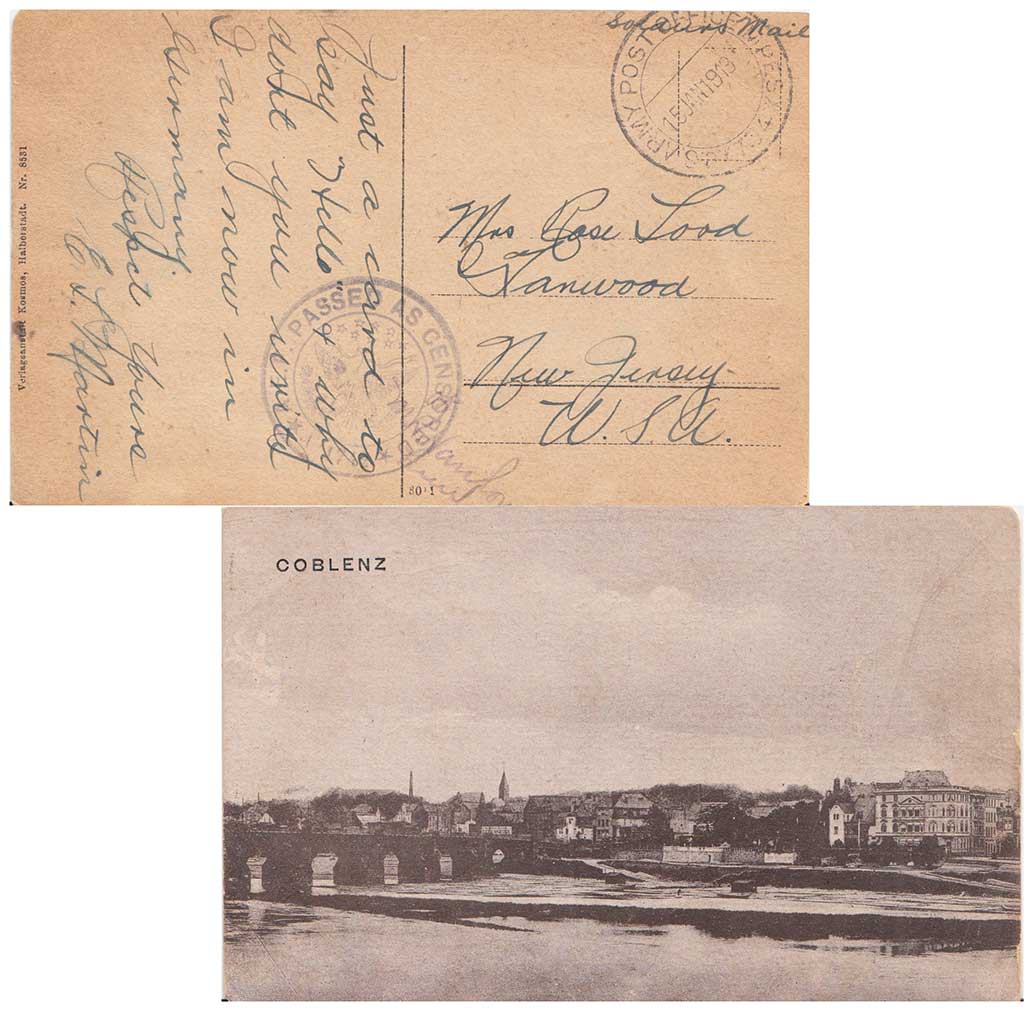 Soldiers Mail
ARMY POST OFFICE
15 JAN 1919
Just a card to
say "Hello" & why
dont you write
I am now in
Germany.
Respct Yours
E. L. Martin
Mrs Rose Lood
Lanwood
New Jersey
U.S.A.
PASSED AS CENSORED
Verlagsanstalt Kosmos, Halberstadt. Nr. 8531
COBLENZ